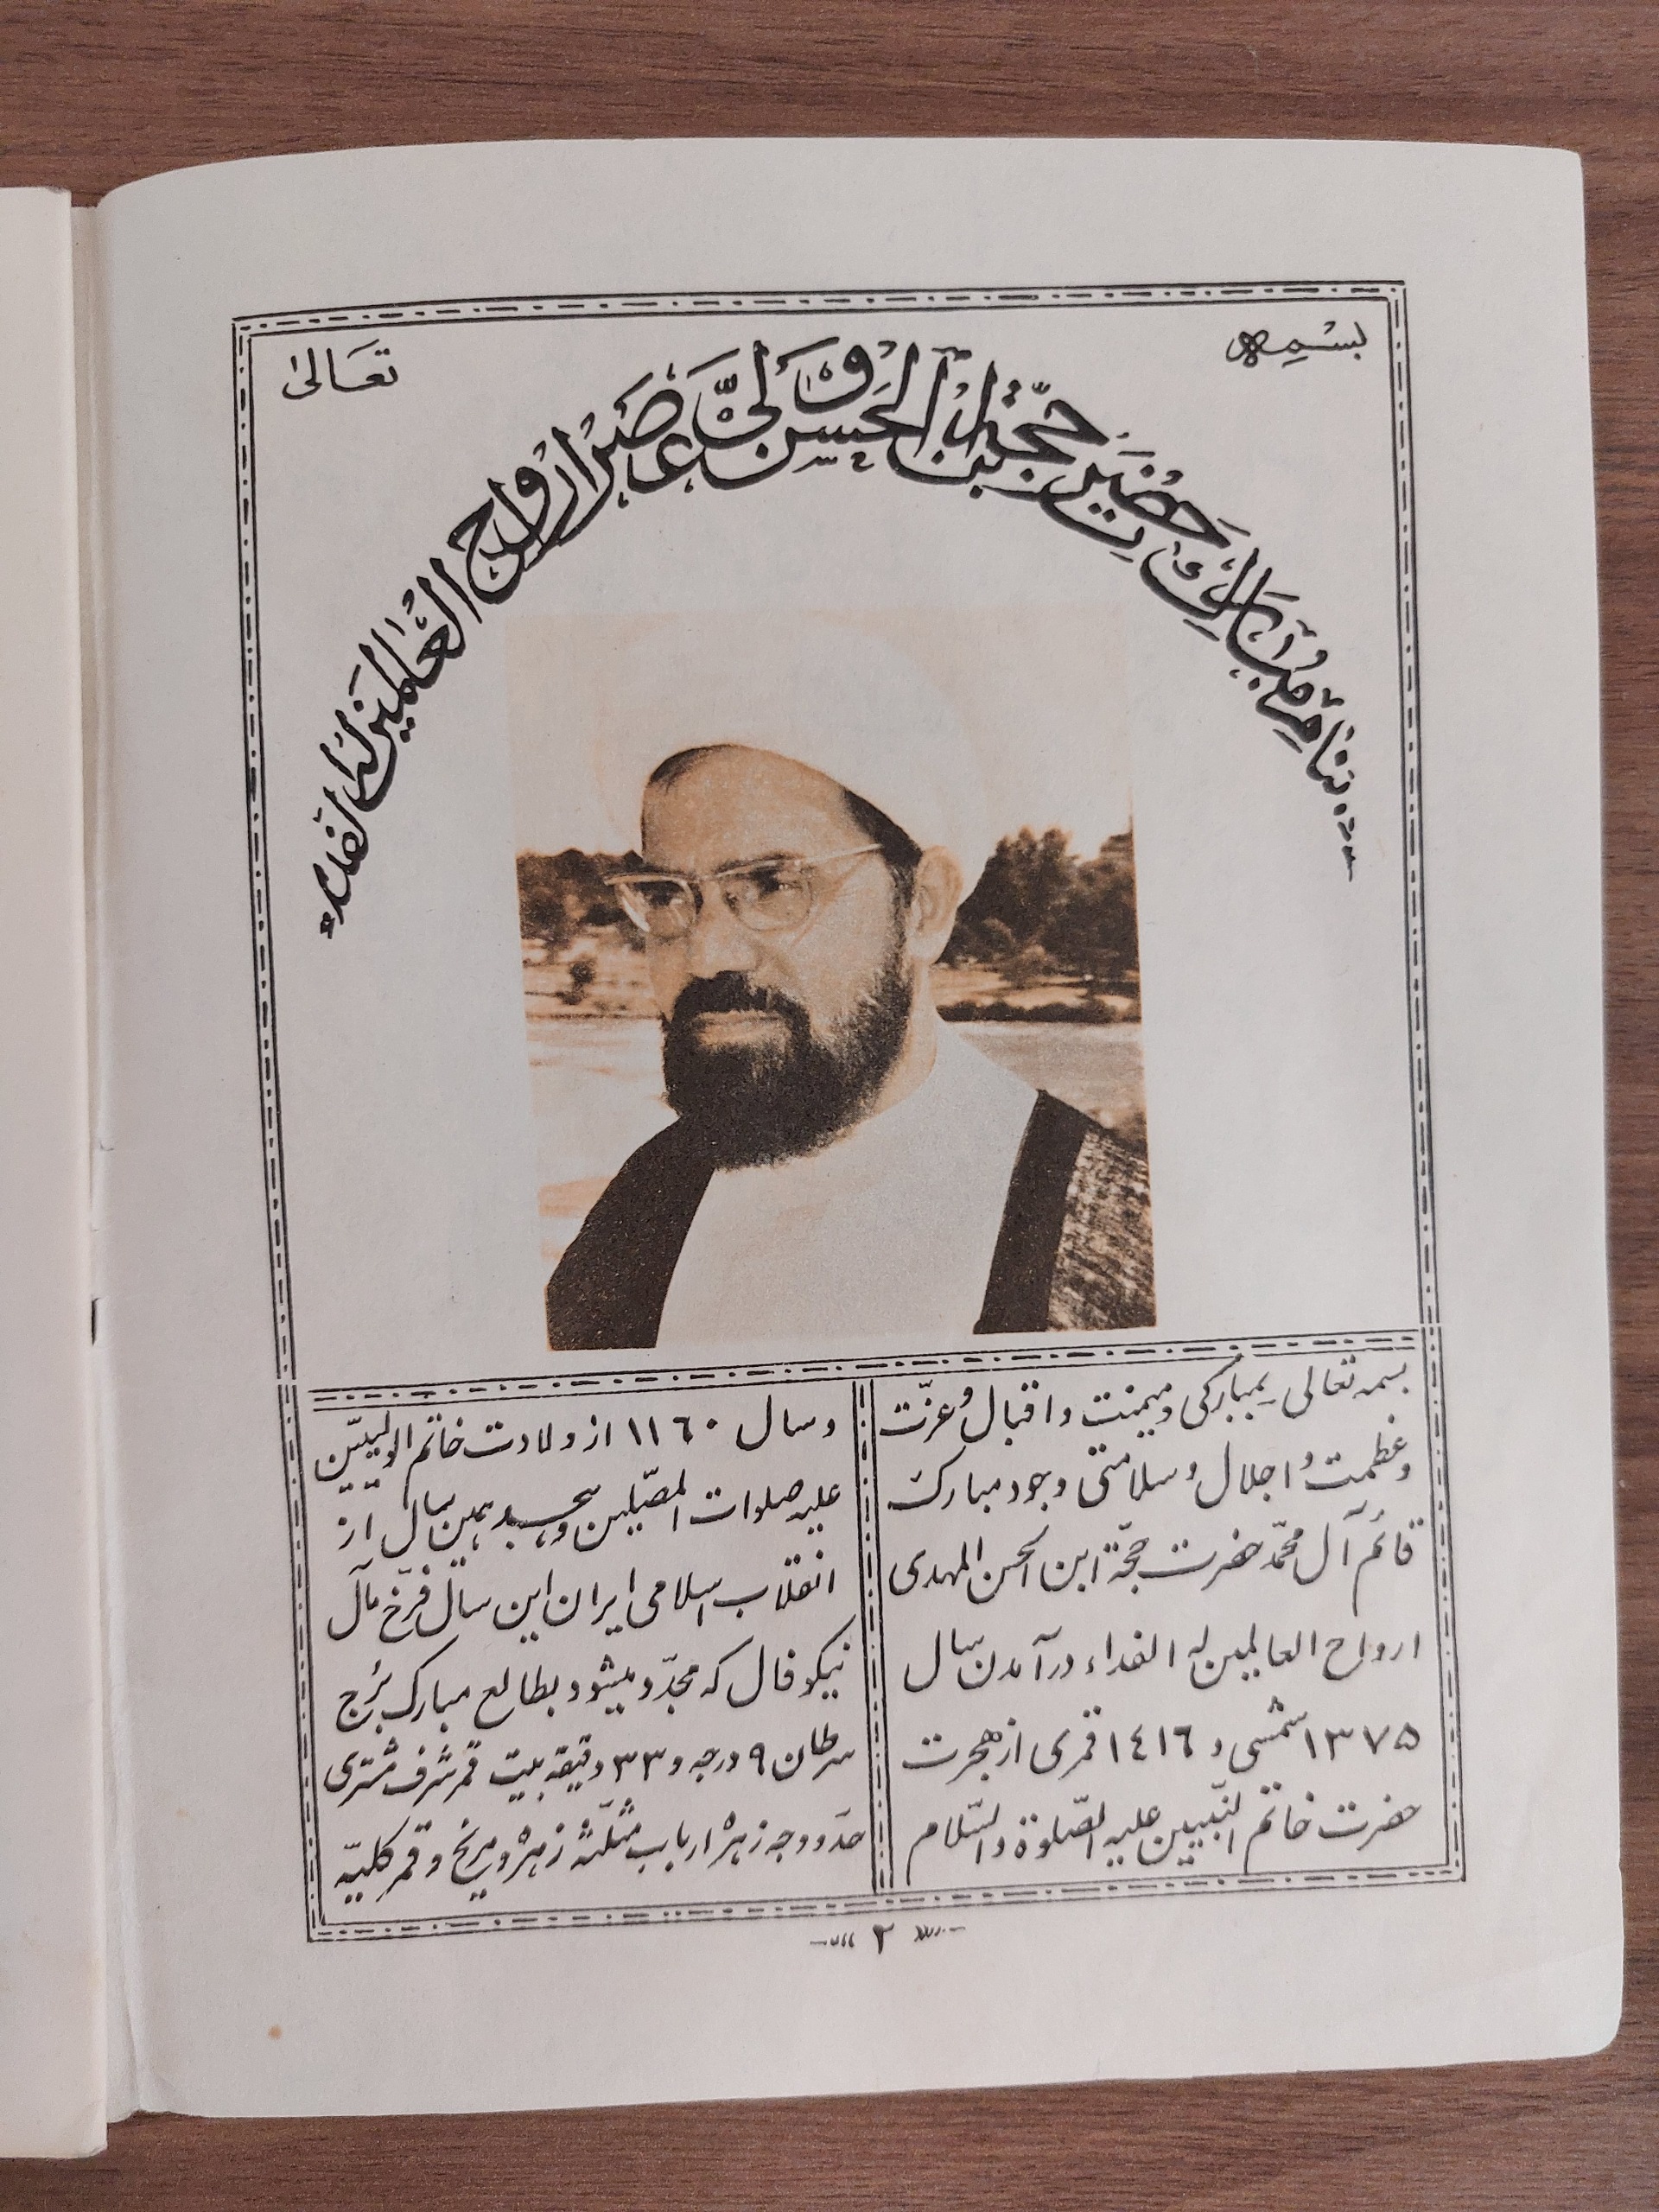 بسمه
تعالی
بنام مبارک حضرت حجّة بن الحسن ولیّ عصر ارواح العالمین له الفداء
بسمه تعالی بمبارکی و میمنت و اقبال و عزّت
و عظمت و اجلال و سلامتی وجود مبارک
قائم آل محمّد حضرت حجّة ابن الحسن المهدی
ارواح العالمین له الفداء درآمدن سال
۱۳۷۵ شمسی و ۱٤۱٦ قمری از هجرت
حضرت خاتم النّبیین علیه الصّلوة والسّلام
و سال ۱۱٦۰ از ولادت خاتم الولیّین
علیه صلوات المصلّین و هیجدهمین سال از
انقلاب اسلامی ایران این سال فرّخ مآل
نیکو فال که مجدّد میشود بطالع مبارک بُرج
سرطان ۹ درجه و ۳۳ دقیقه بیت قمر شرف مشتری
حدّ و وجه زهره ارباب مثلّثه زهره و مریخ و قمر کلیّه
۲